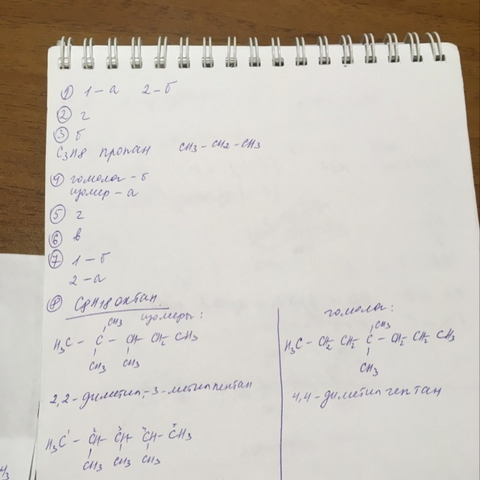 ① 1 – а 2 – б
② г
③ б
C3H8 пропан CH3 – CH2 – CH3
④ гомолог – б
изомер – а
⑤ г
⑥ в
⑦ 1 – б
2 – а
⑧ C8H18 октан.
изомеры:
CH3
H3C – C – CH – CH2 – CH3
CH3 CH3
2,2-диметил,-3-метилпентан
H3C – CH – CH – CH – CH3
CH3 CH3 CH3
гомолог:
CH3
H3C – CH2 – CH2 – C – CH2 – CH2 – CH3
CH3
4,4-диметилгептан